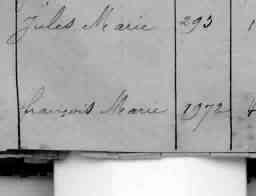 Jules Marie 293 1
François Marie 1972